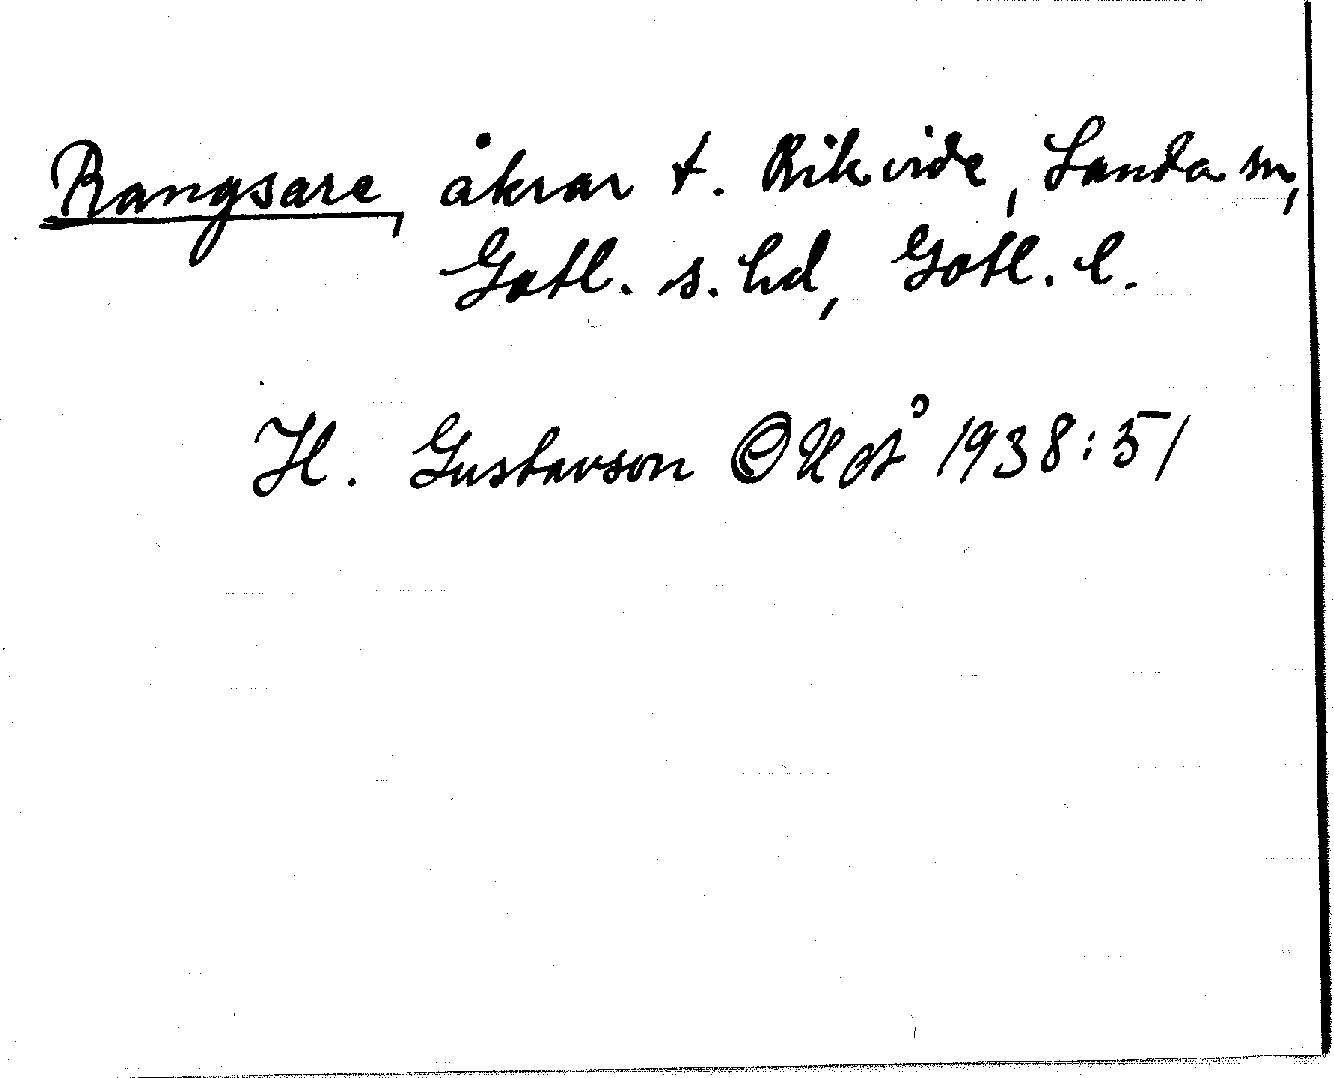 Rangsare, åkrar t. Rikvide, Sanda sn,
Gotl. s. hd, Gotl. l.
H. Gustavson OUÅ 1938:51